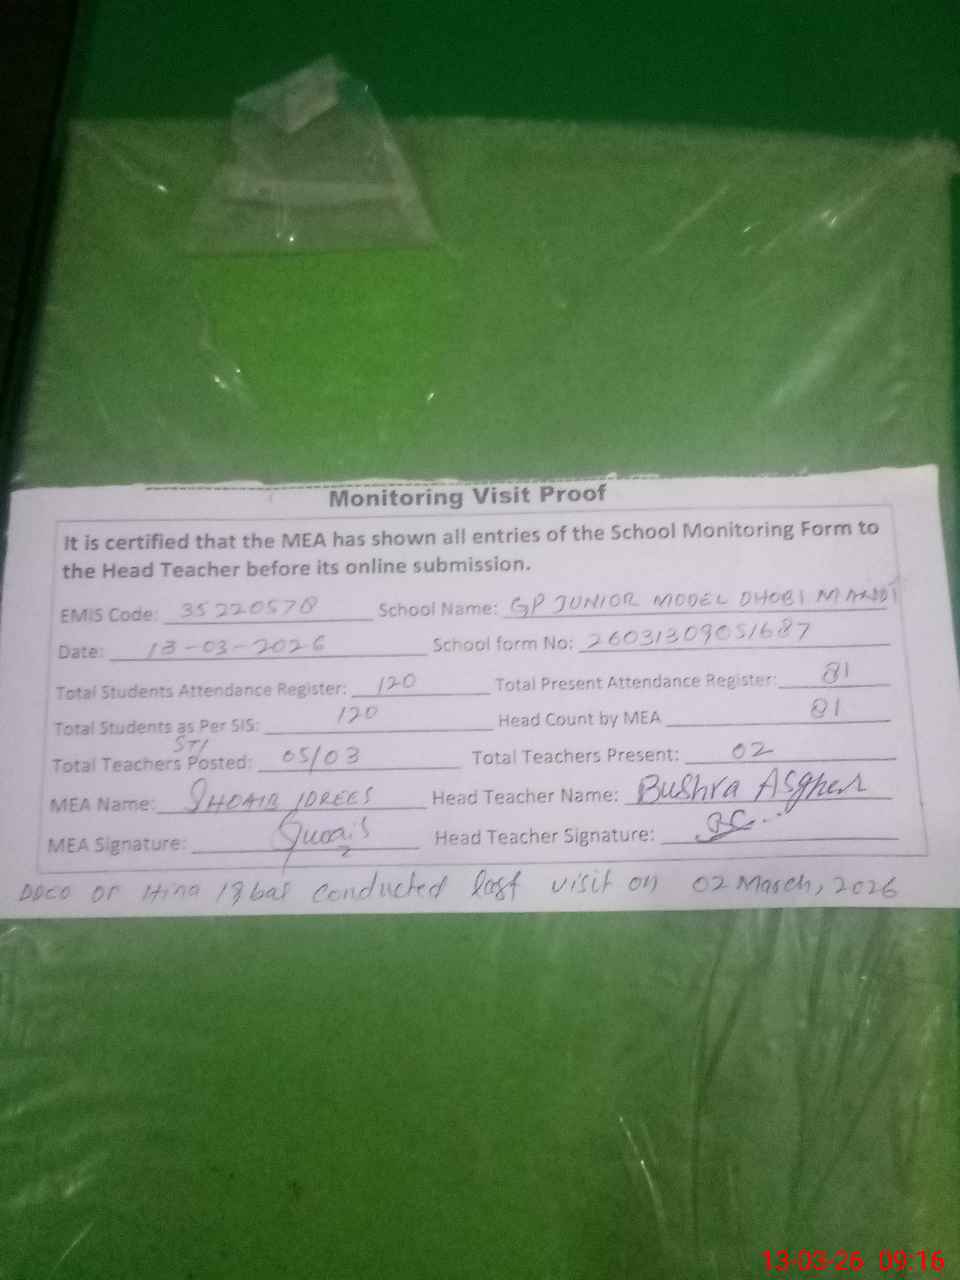 Monitoring Visit Proof
It is certified that the MEA has shown all entries of the School Monitoring Form to
the Head Teacher before its online submission.
EMIS Code: 35220578 School Name: GP JUNIOR MODEL DHOBI MANDI
Date: 13-03-2026 School form No: 26031309051687
Total Students Attendance Register: 120 Total Present Attendance Register: 81
Total Students as Per SIS: 120 Head Count by MEA 81
STI
Total Teachers Posted: 05/03 Total Teachers Present: 02
MEA Name: SHOAIB IDREES Head Teacher Name: Bushra Asgher
MEA Signature: Head Teacher Signature:
Hina Iqbal conducted last visit on 02 March, 2026
13-03-26 09:16